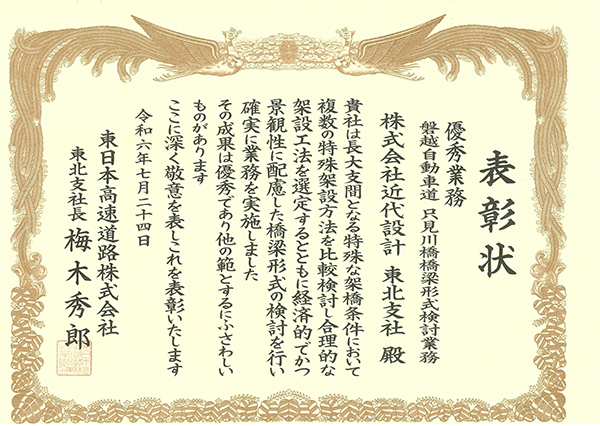 表彰状
優秀業務
磐越自動車道 只見川橋橋梁形式検討業務
株式会社近代設計 東北支社 殿
貴社は長大支間となる特殊な架橋条件において
複数の特殊架設方法を比較検討し合理的な
架設工法を選定するとともに経済的でかつ
景観性に配慮した橋梁形式の検討を行い
確実に業務を実施しました
その成果は優秀であり他の範とするにふさわしい
ものがあります
ここに深く敬意を表しこれを表彰いたします
令和六年七月二十四日
東日本高速道路株式会社
東北支社長 梅木秀郎